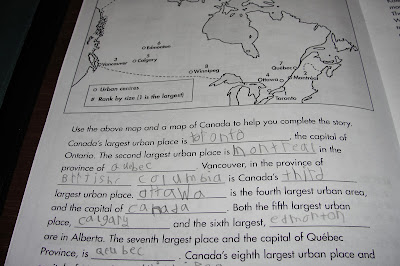 6
Edmonton
3
Vancouver
5
Calgary
8
Winnipeg
7
Québec
4
Ottawa
2
Montréal
1
Toronto
o Urban centres
# Rank by size (1 is the largest)
Use the above map and a map of Canada to help you complete the story.
Canada's largest urban place is toronto, the capital of
Ontario. The second largest urban place is montreal in the
province of qubec. Vancouver, in the province of
British, columbia is Canada's third
largest urban place. ottawa is the fourth largest urban area,
and the capital of canada. Both the fifth largest urban
place, calgary and the sixth largest, edmonton
are in Alberta. The seventh largest place and the capital of Québec
Province, is qeubec. Canada's eighth largest urban place and